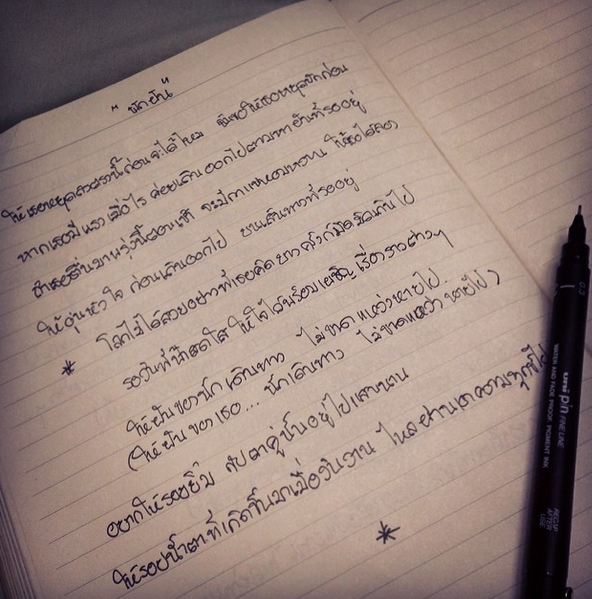 " นักฝัน "
ให้เธอหยุดตรงนี้ก่อนจะได้ไหม ฉันขอให้เธอหยุดพักก่อน
หากเธอมีแรงเมื่อไร ค่อยเดินออกไปตามหาฝันที่รออยู่
ถ้าเธอตื่นมาพรุ่งนี้ตอนเช้า จะมีกาแฟหอมหวาน ให้เธอได้
ให้อุ่นหัวใจ ก่อนเดินออกไป บนเส้นทางที่รออยู่
* โลกไม่ได้สวยอย่างที่เธอคิด บางครั้งก็มืดมิดเกินไป
รอวันที่ฟ้าสดใส ให้ใจได้พร้อมเผชิญเรื่องราวต่างๆ
ให้ฝันของนักเดินทาง ไม่ขาดแหว่งหายไป
(ให้ฝันของเธอ... นักเดินทาง ไม่ขาดแหว่ง หายไป)
อยากให้รอยยิ้ม กับตาคู่นั้นอยู่ไปแสนนาน
ให้รอยน้ำตาที่เกิดขึ้นมาเมื่อวันวาน ไหลผ่านเอาความทุกข์ไป
*
0.3
uni pin FINE LINE
WATER AND FADE PROOF, PIGMENT INK
RECAP AFTER USE